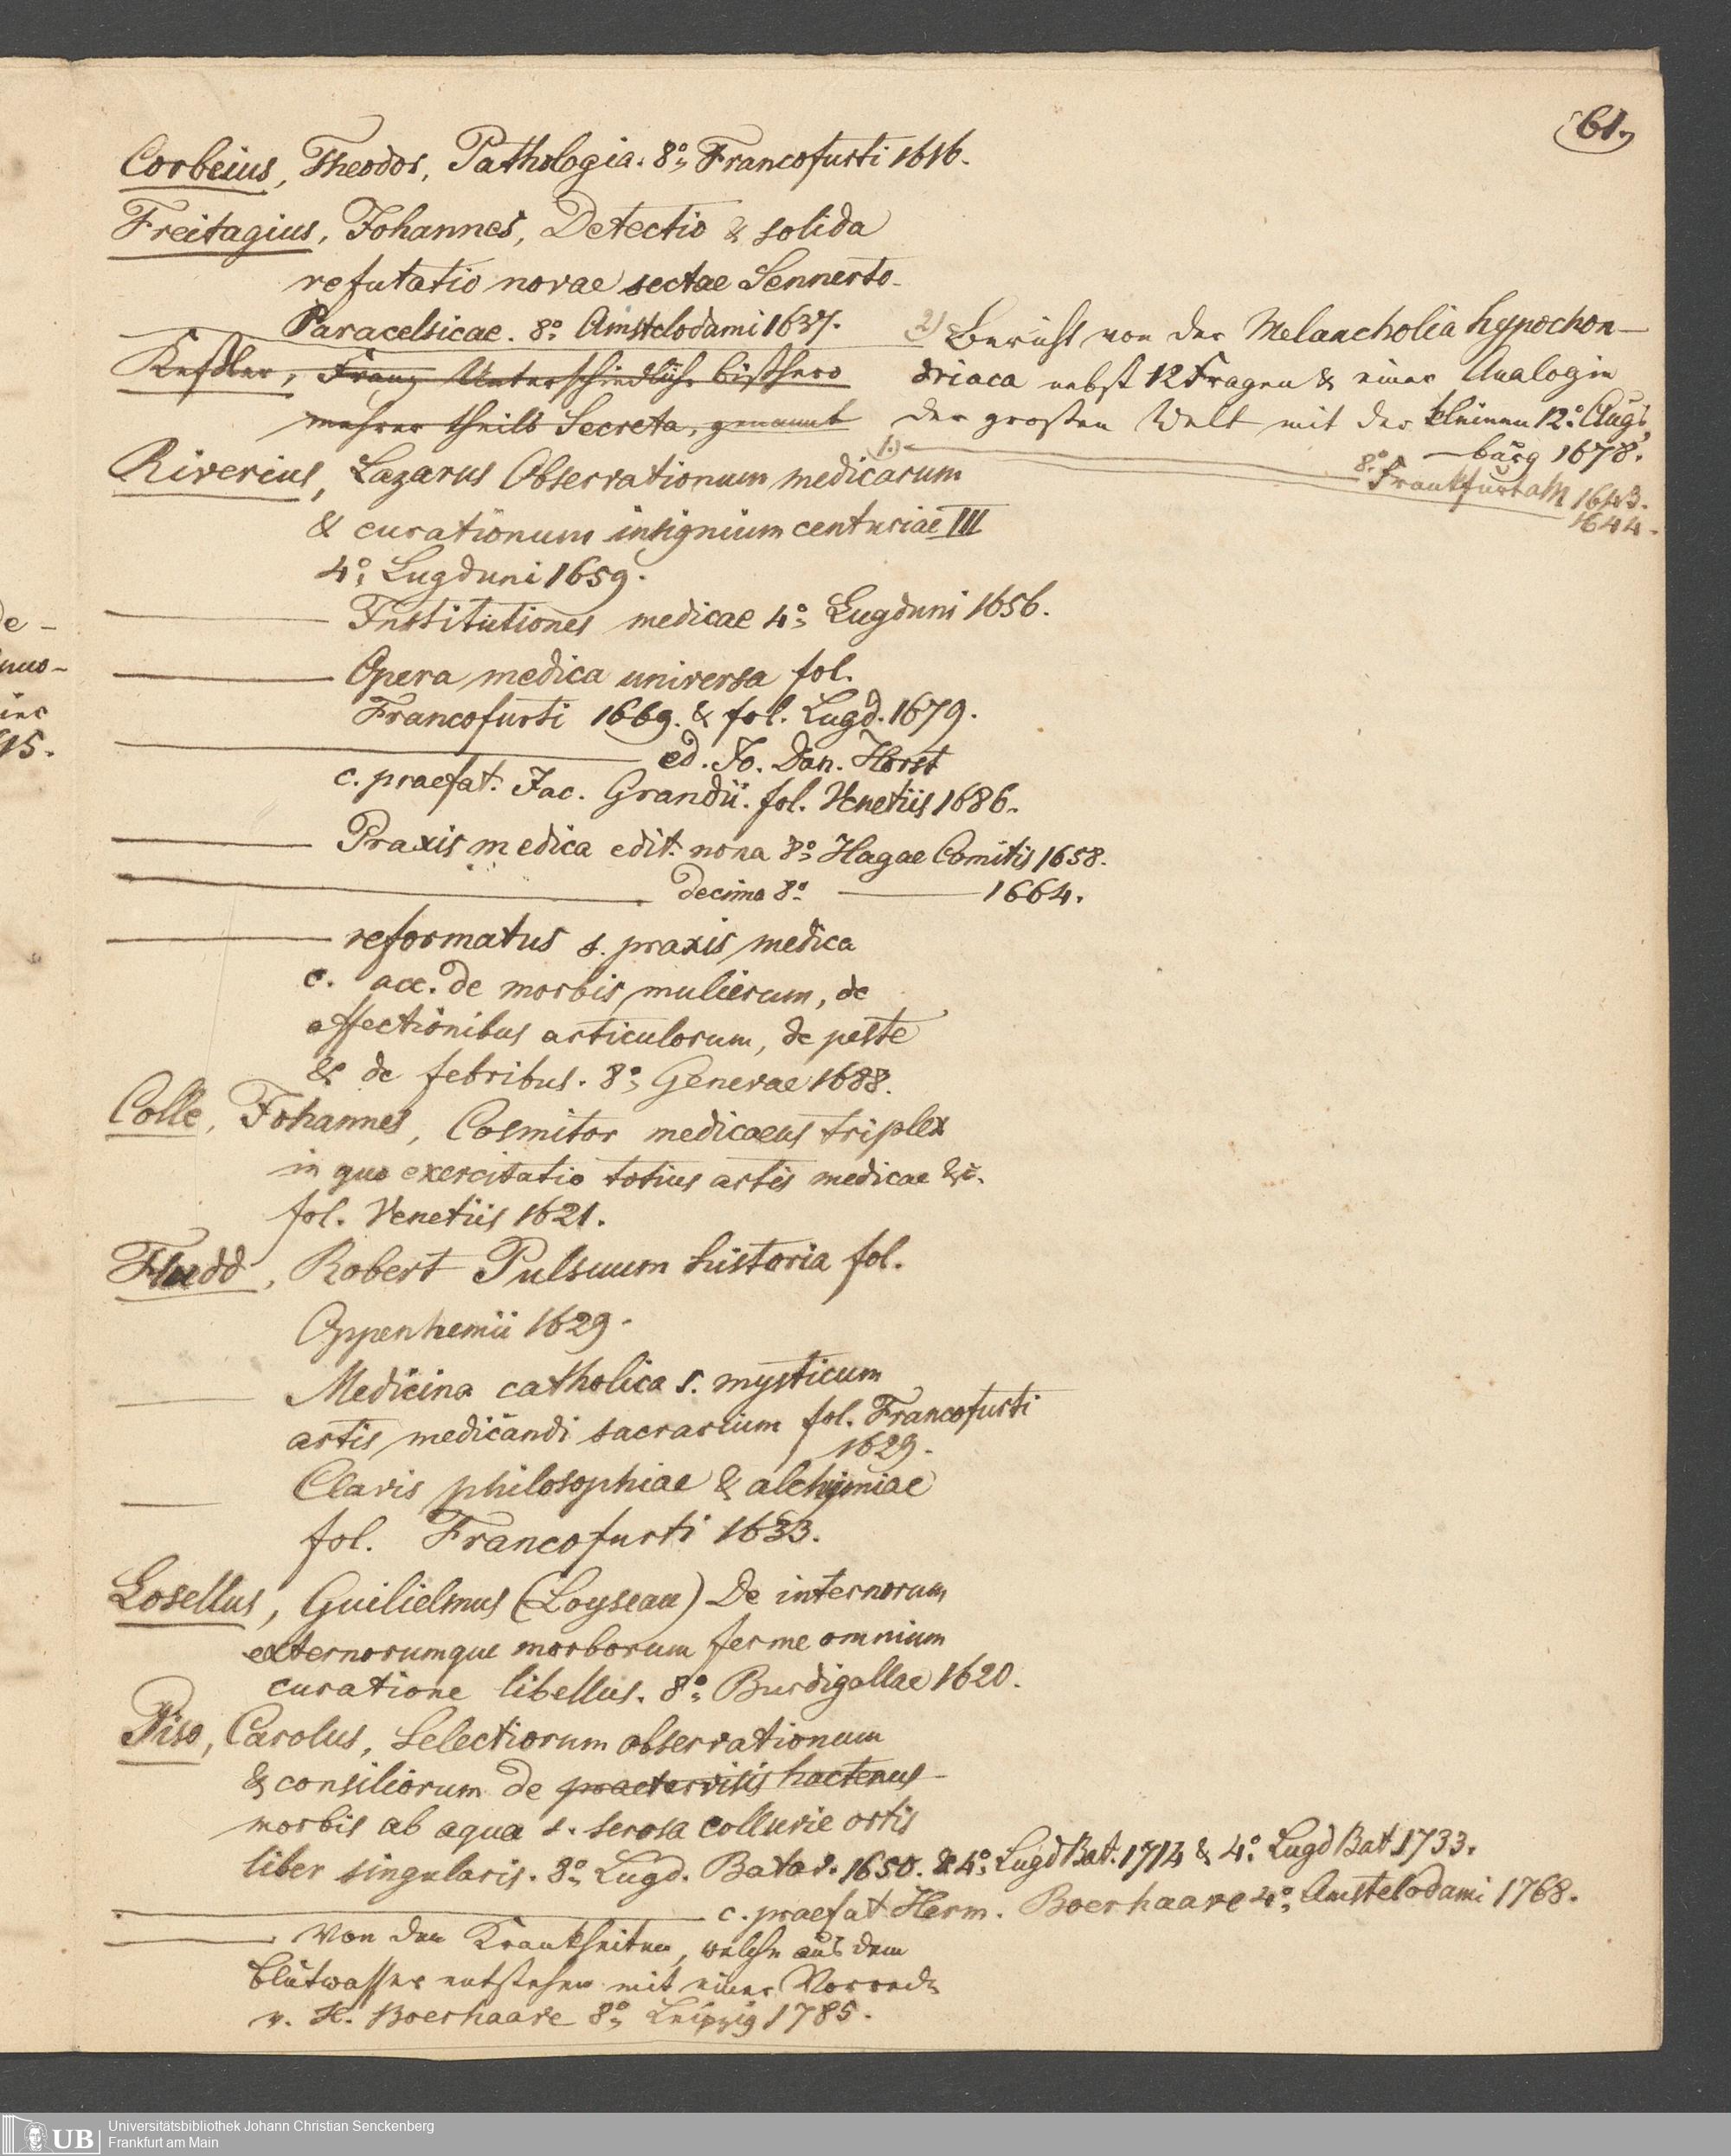 61.
Corbeius, Theodor, Pathologia. 8° Francofurti 1616.
Freitagius, Johannes, Detectio & solida
refutatio novae sectae Sennerto-
Paracelsicae. 8° Amstelodami 1637.
Keßler, Franz Unterschiedliche bißhero
mehrer theils Secreta, genannt
2) Bericht von der Melancholia hypochon-
driaca nebst 12 Fragen & einer Analogia
der großen Welt mit der kleinen 12° Augs-
burg 1678.
1.)
8° Frankfurt a M 1643.
1644.
Riverius, Lazarus Observationum medicarum
& curationum insignium centuriae III
4°, Lugduni 1659.
Institutiones medicae 4°, Lugduni 1656.
Opera medica universa fol.
Francofurti 1669. & fol. Lugd. 1679.
ed. Jo. Dan. Horst
c. praefat. Jac. Grandii. fol. Venetiis 1686.
Praxis medica edit. nona 8° Hagae Comitis 1658.
decima 8° 1664.
reformatus s. praxis medica
c. acc. de morbis mulierum, de
affectionibus articulorum, de peste
& de febribus. 8°, Genevae 1688.
Colle, Johannes, Cosmitor medicaeus triplex
in quo exercitatio totius artis medicae &c.
fol. Venetiis 1621.
Fludd, Robert Pulsuum historia fol.
Oppenhemii 1629.
Medicina catholica s. mysticum
artis medicandi sacrarium fol. Francofurti
1629.
Clavis philosophiae & alchymiae
fol. Francofurti 1633.
Losellus, Guilielmus (Loyseau) De internorum
externorumque morborum ferme omnium
curatione libellus. 8°, Burdigallae 1620.
Piso, Carolus, Selectiorum observationum
& consiliorum de praetervisis hactenus
morbis ab aqua s. serosa colluvie ortis
liber singularis. 8°, Lugd. Batav. 1650. & 4°, Lugd Bat. 1714 & 4° Lugd Bat 1733.
c. praefat Herm. Boerhaave 4°, Amstelodami 1768.
Von den Krankheiten, welche aus dem
Blutwasser entstehen mit einer Vorrede
v. H. Boerhaave 8°, Leipzig 1785.
de-
15.
UB
Universitätsbibliothek Johann Christian Senckenberg
Frankfurt am Main